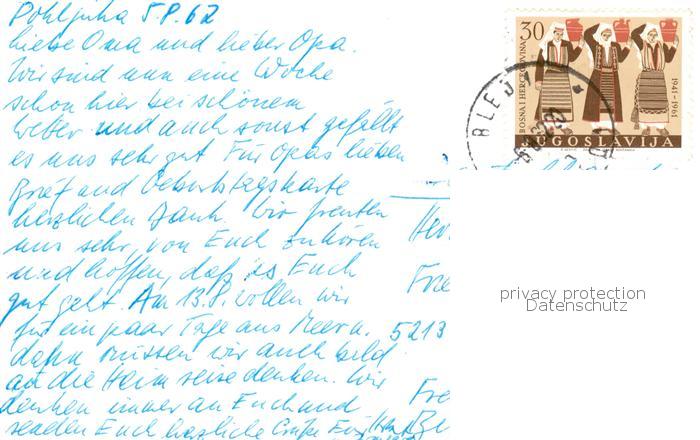 Pokljuka 5.8.62
Liebe Oma und lieber Opa.
Wir sind nun eine Woche
schon hier bei schönem
Wetter und auch sonst gefällt
es uns sehr gut. Für Opas lieben
Brief und Geburtstagskarte
herzlichen Dank. Wir freuten
uns sehr, von Euch zu hören
und hoffen, daß es Euch
gut geht. Am 13.8. wollen wir
für ein paar Tage ans Meer u.
dann müssen wir auch bald
an die Heimreise denken. Wir
denken immer an Euch und
senden Euch herzliche Grüße
30
BOSNA I HERCEGOVINA
1941-1961
JUGOSLAVIJA
BLED
Her
Frie
5213
Fre
Be
privacy protection
Datenschutz